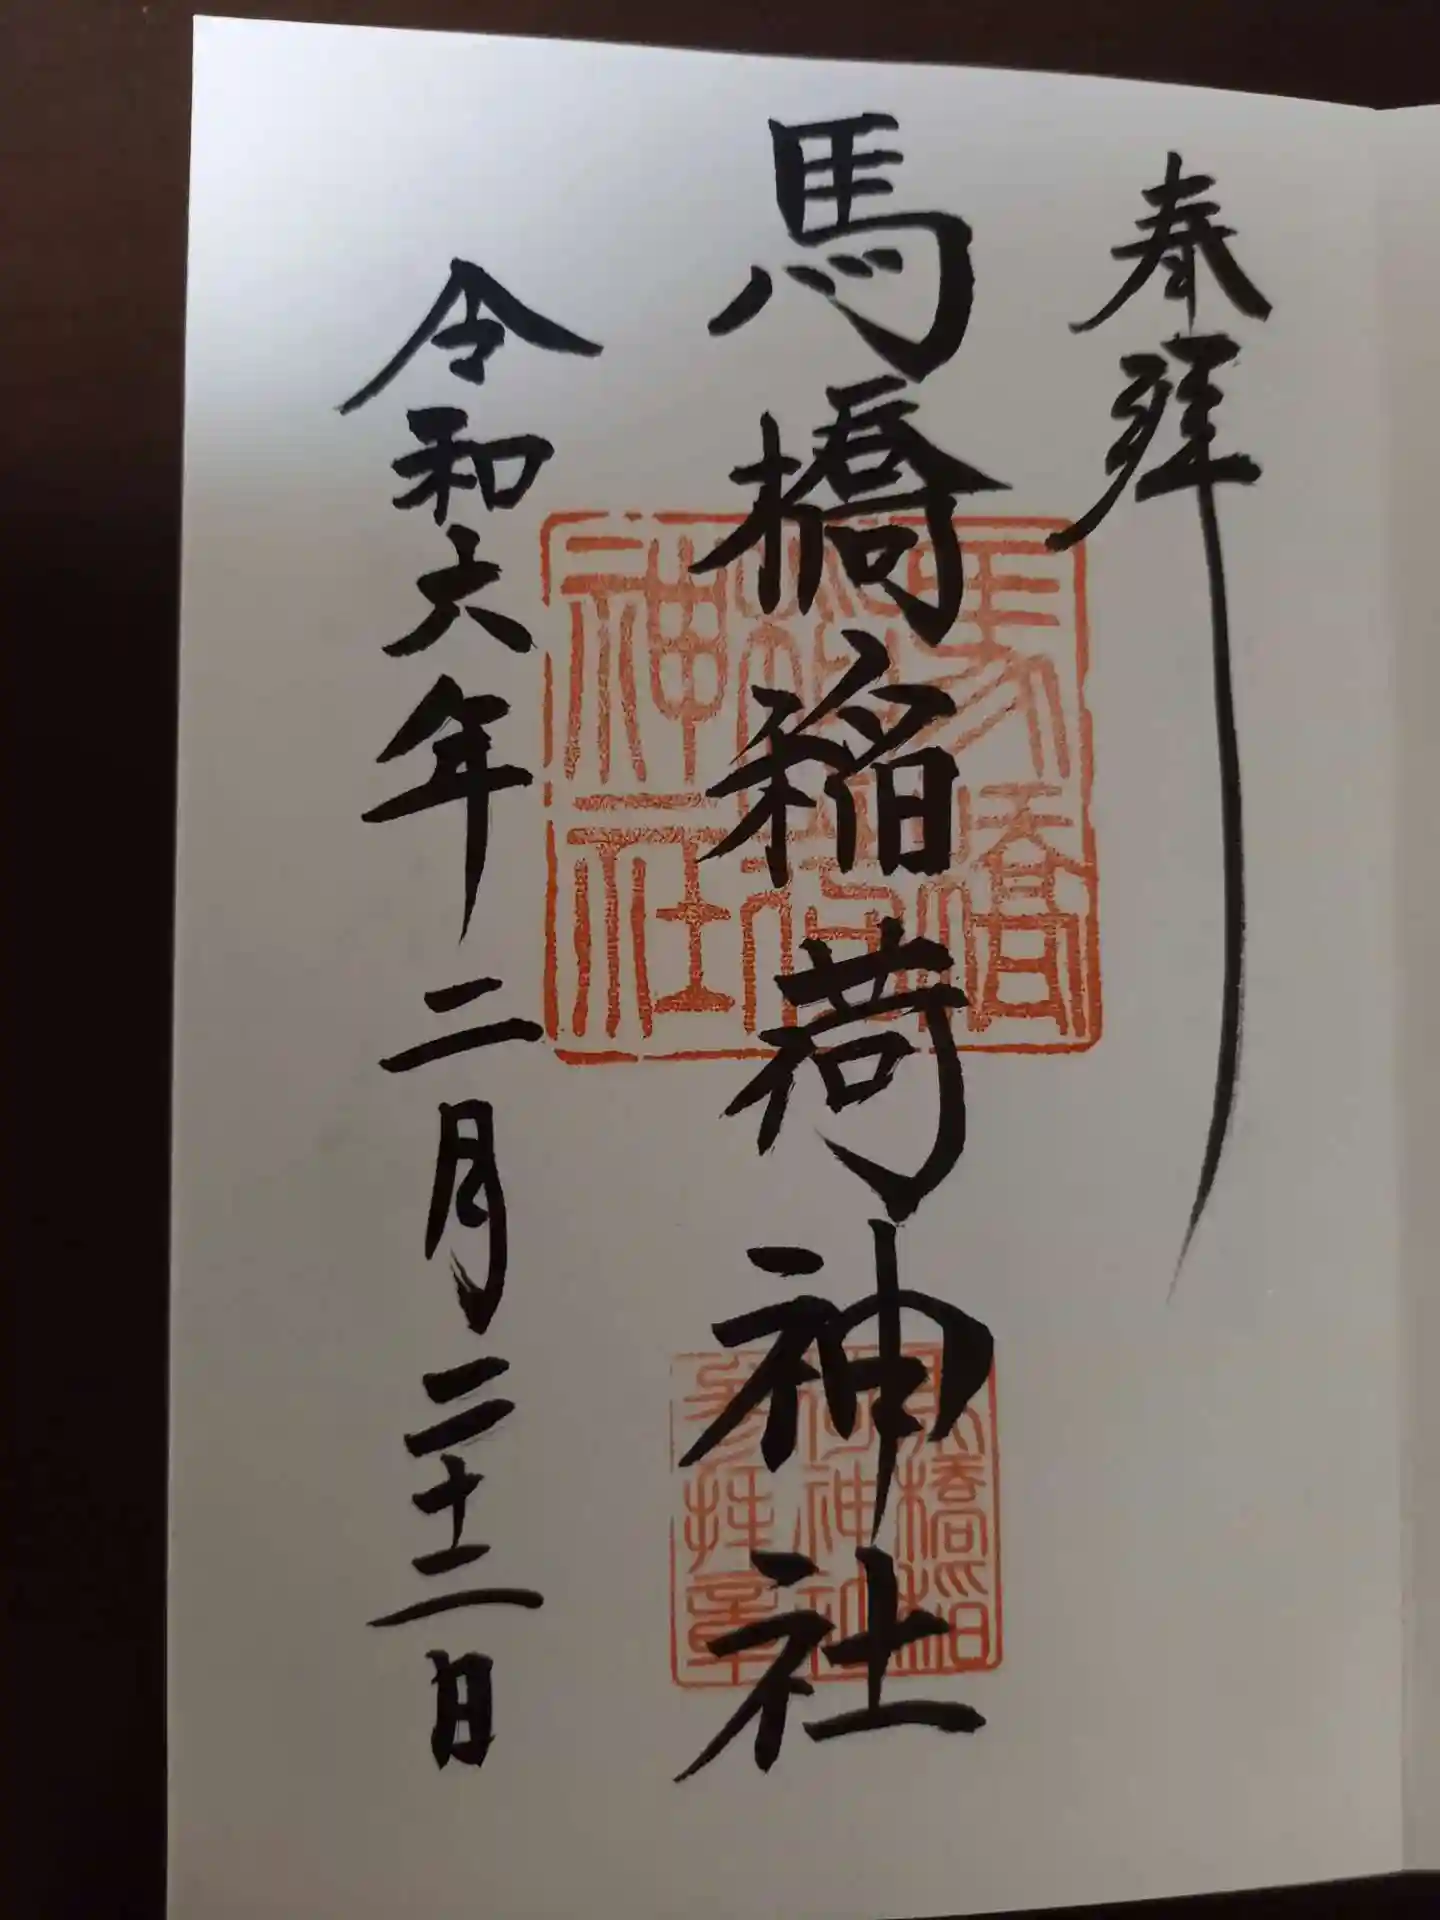 奉拝
馬橋稲荷神社
令和六年二月二十二日
馬橋
稲荷
神社
馬橋稲
荷神社
参拝章